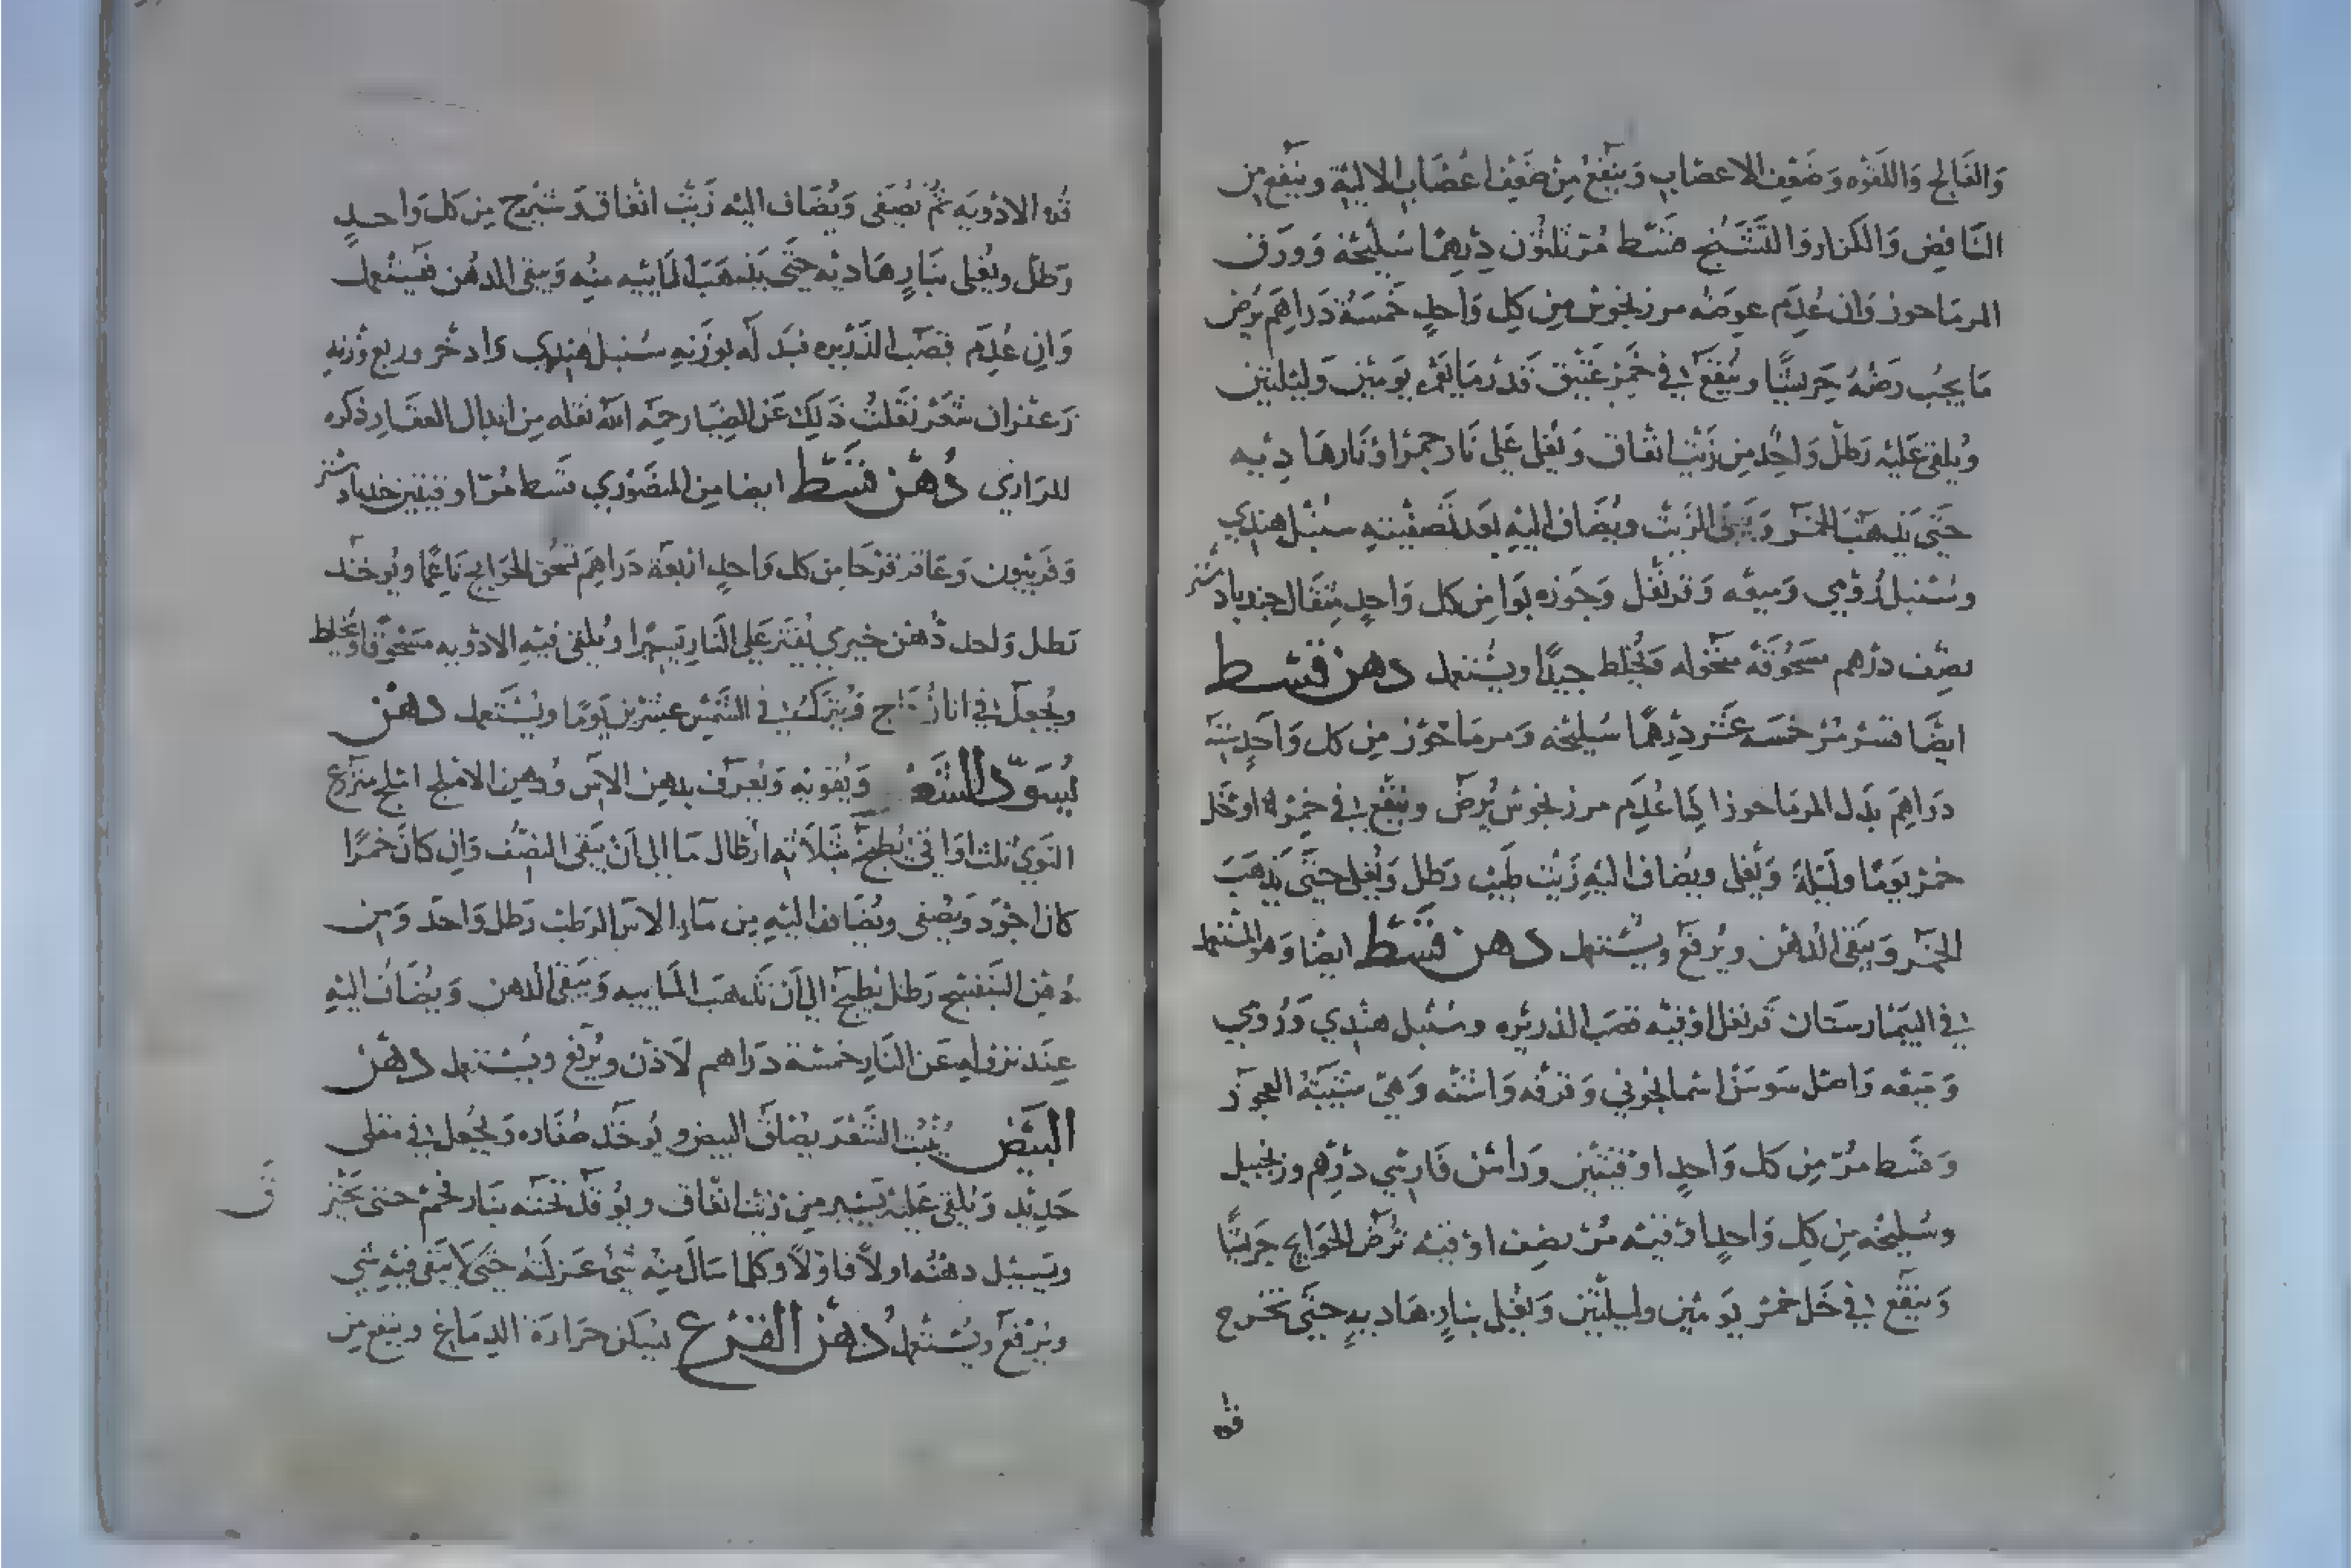 والفالج واللقوه وضعف الاعصاب وينفع من ضعف اعصاب الالية وينفع من
النافض والكزاز والتشنج قسط مر ثلثون درهما سليخه وورق
المرماحوز وان عدم عوضه مرزنجوش من كل واحد خمسة دراهم يرض
ما يجب رضه جريشا وينقع في خمر عتيق قدر ما يغمره يومين وليلتين
ويلقى عليه رطل واحد من زيت انفاق ويغلى على نار جمر او نار هاديه
حتى يذهب الخمر ويبقى الزيت ويضاف اليه بعد تصفيته سنبل هندي
وسنبل رومي وميعه وقرنفل وجوزه بوا من كل واحد مثقال جندبادستر
نصف درهم مسحوقه منخوله ويخلط جيدا ويستعمل دهن قسط
ايضا قسط مر خمسه عشر درهما سليخه ومرماحوز من كل واحد ستة
دراهم بدل المرماحوز اذا عدم مرزنجوش يرض وينقع في خمر او خل
خمر يوما وليلة ويغلى ويضاف اليه زيت طيب رطل ويغلى حتى يذهب
الخمر ويبقى الدهن ويرفع ويستعمل دهن قسط ايضا وهو المستعمل
في البيمارستان قرنفل اوقيه قصب الذريره وسنبل هندي ورومي
وميعه واصل سوسن اسمانجوني وقرفه واشنه وهي شيبة العجوز
وقسط مر من كل واحد اوقيتين وراسن فارسي درهم وزنجبيل
وسليخه من كل واحد اوقيه مر نصف اوقيه ترض الحوايج جريشا
وينقع في خل خمر يومين وليلتين ويغلى بنار هاديه حتى تخرج
قوة
قوه الادويه ثم يصفى ويضاف اليه زيت انفاق وشيرج من كل واحد
رطل ويغلى بنار هاديه حتى يذهب المائيه منه ويبقى الدهن فيستعمل
وان عدم قصب الذريره فبدله بوزنه سنبل هندي واذخر وربع وزنه
زعفران شعر نقلت ذلك عن الضيا رحمه الله نقله من ابدال العقار ذكره
للرازي دهن قسط ايضا من المنصوري قسط مر اوقيتين جندبادستر
وفربيون وعاقرقرحا من كل واحد اربعة دراهم تسحق الحوايج ناعما ويوخذ
رطل واحد دهن خيري يفتر على النار يسيرا ويلقى فيه الادويه مسحوقا ويخلط
ويجعل في انا زجاج ويترك في الشمس عشرين يوما ويستعمل دهن
يسود الشعر ويقويه ويعرف بدهن الاس ودهن الاملج املج منزوع
النوي ثلث اواقي يطبخ بثلاثه ارطال ما الى ان يبقى النصف وان كان خمرا
كان اجود ويصفى ويضاف اليه من ماء الاس الرطب رطل واحد ومن
دهن البنفسج رطل يطبخ الى ان تذهب المائيه ويبقى الدهن ويضاف اليه
عند نزوله عن النار خمسة دراهم لاذن ويرفع ويستعمل دهن
البيض ينبت الشعر يصلق البيض ويوخذ صفاره ويجعل في مقلى
حديد ويلقى عليه يسير من زيت انفاق ويوقد تحته بنار فحم حتى
ويسيل دهنه اولا فاولا وكلما سال منه شي عزلته حتى لا يبقى فيه شي
ويرفع ويستعمل دهن القرع يسكن حرارة الدماغ وينفع من